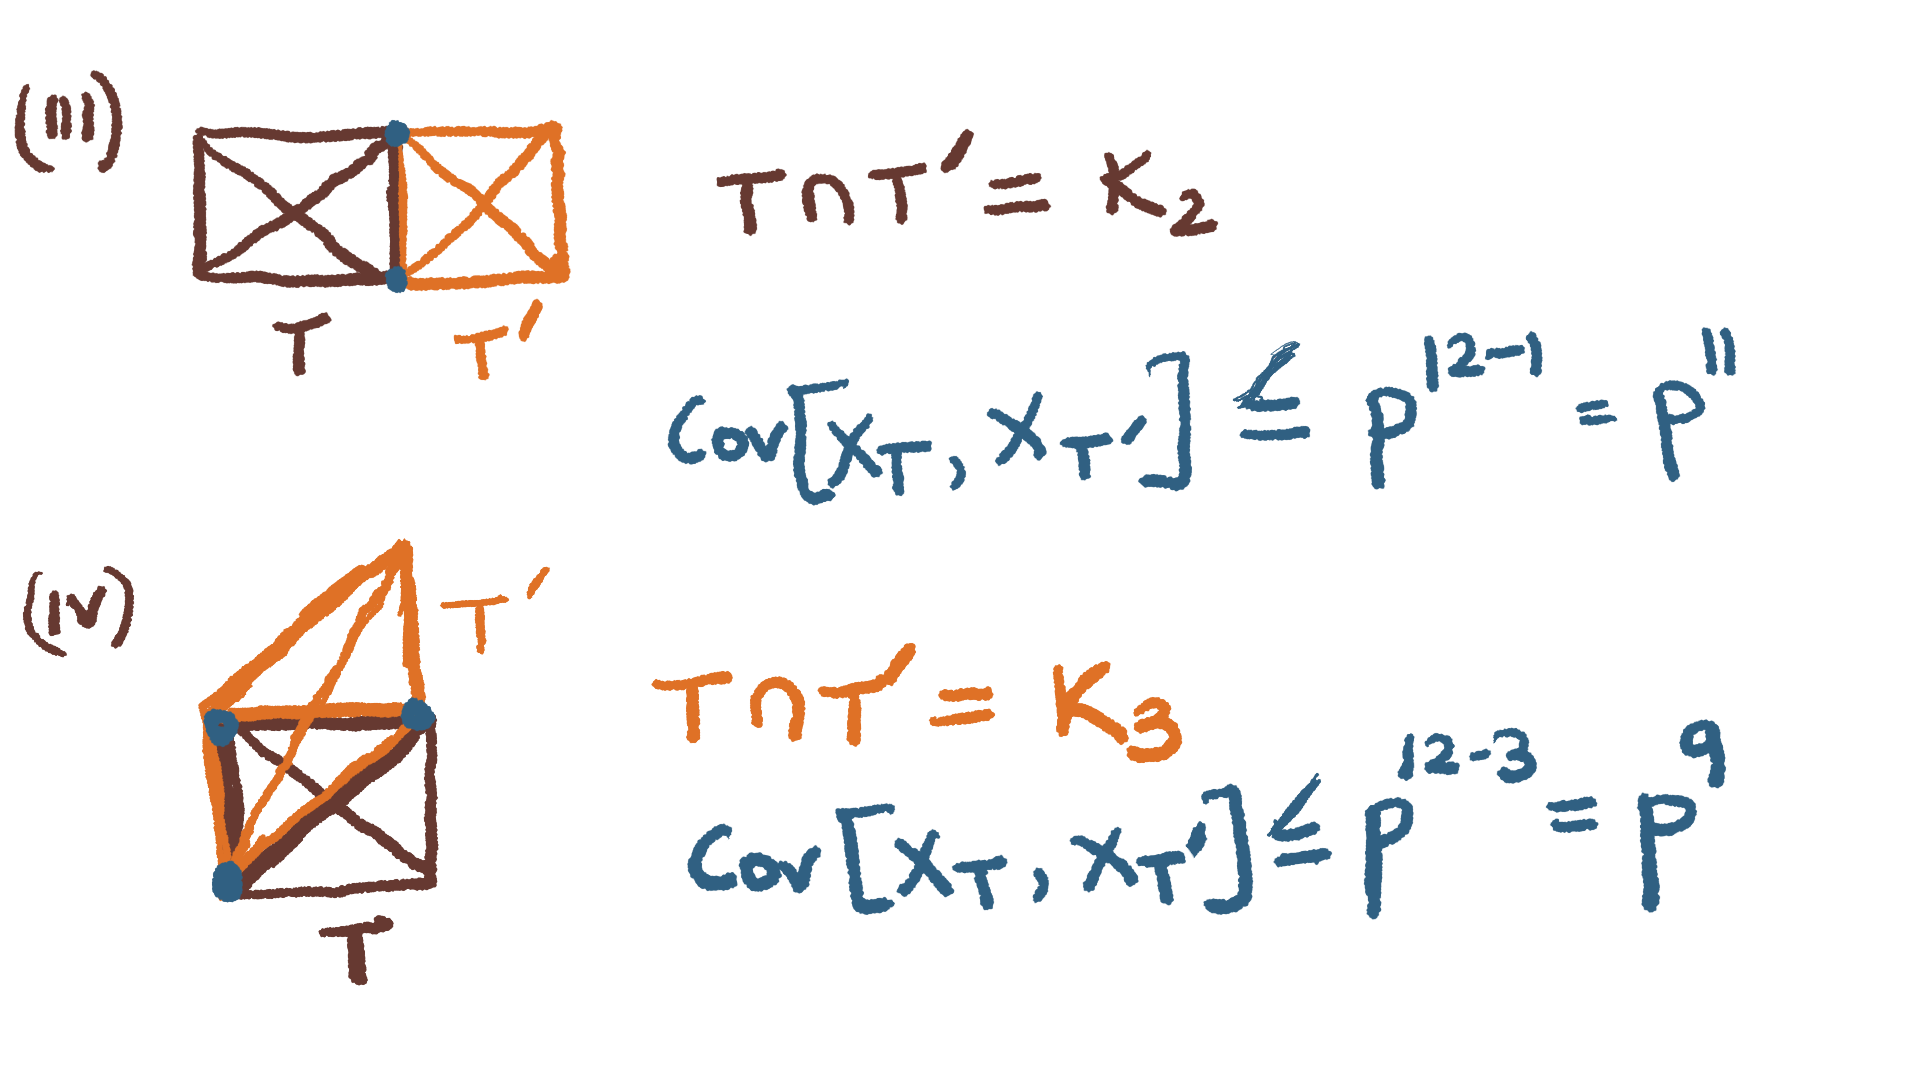 (III)
T ∩ T' = K₂
T T'
Cov[X_T, X_T'] ≤ p^{12-1} = p^{11}
(IV)
T'
T ∩ T' = K₃
Cov[X_T, X_T'] ≤ p^{12-3} = p^9
T